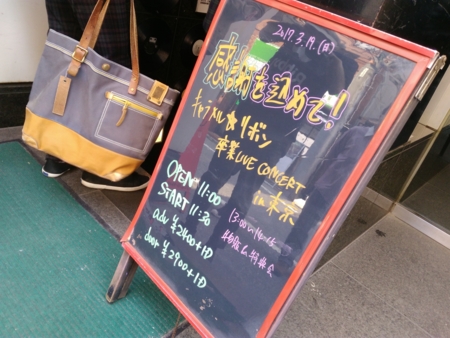 2017.3.19.(日)
感謝を込めて!
キャラメル☆リボン
卒業LIVE CONCERT
in 東京
OPEN 11:00
START 11:30
adv ¥2400+1D
door ¥2900+1D
13:00
物販&特典会